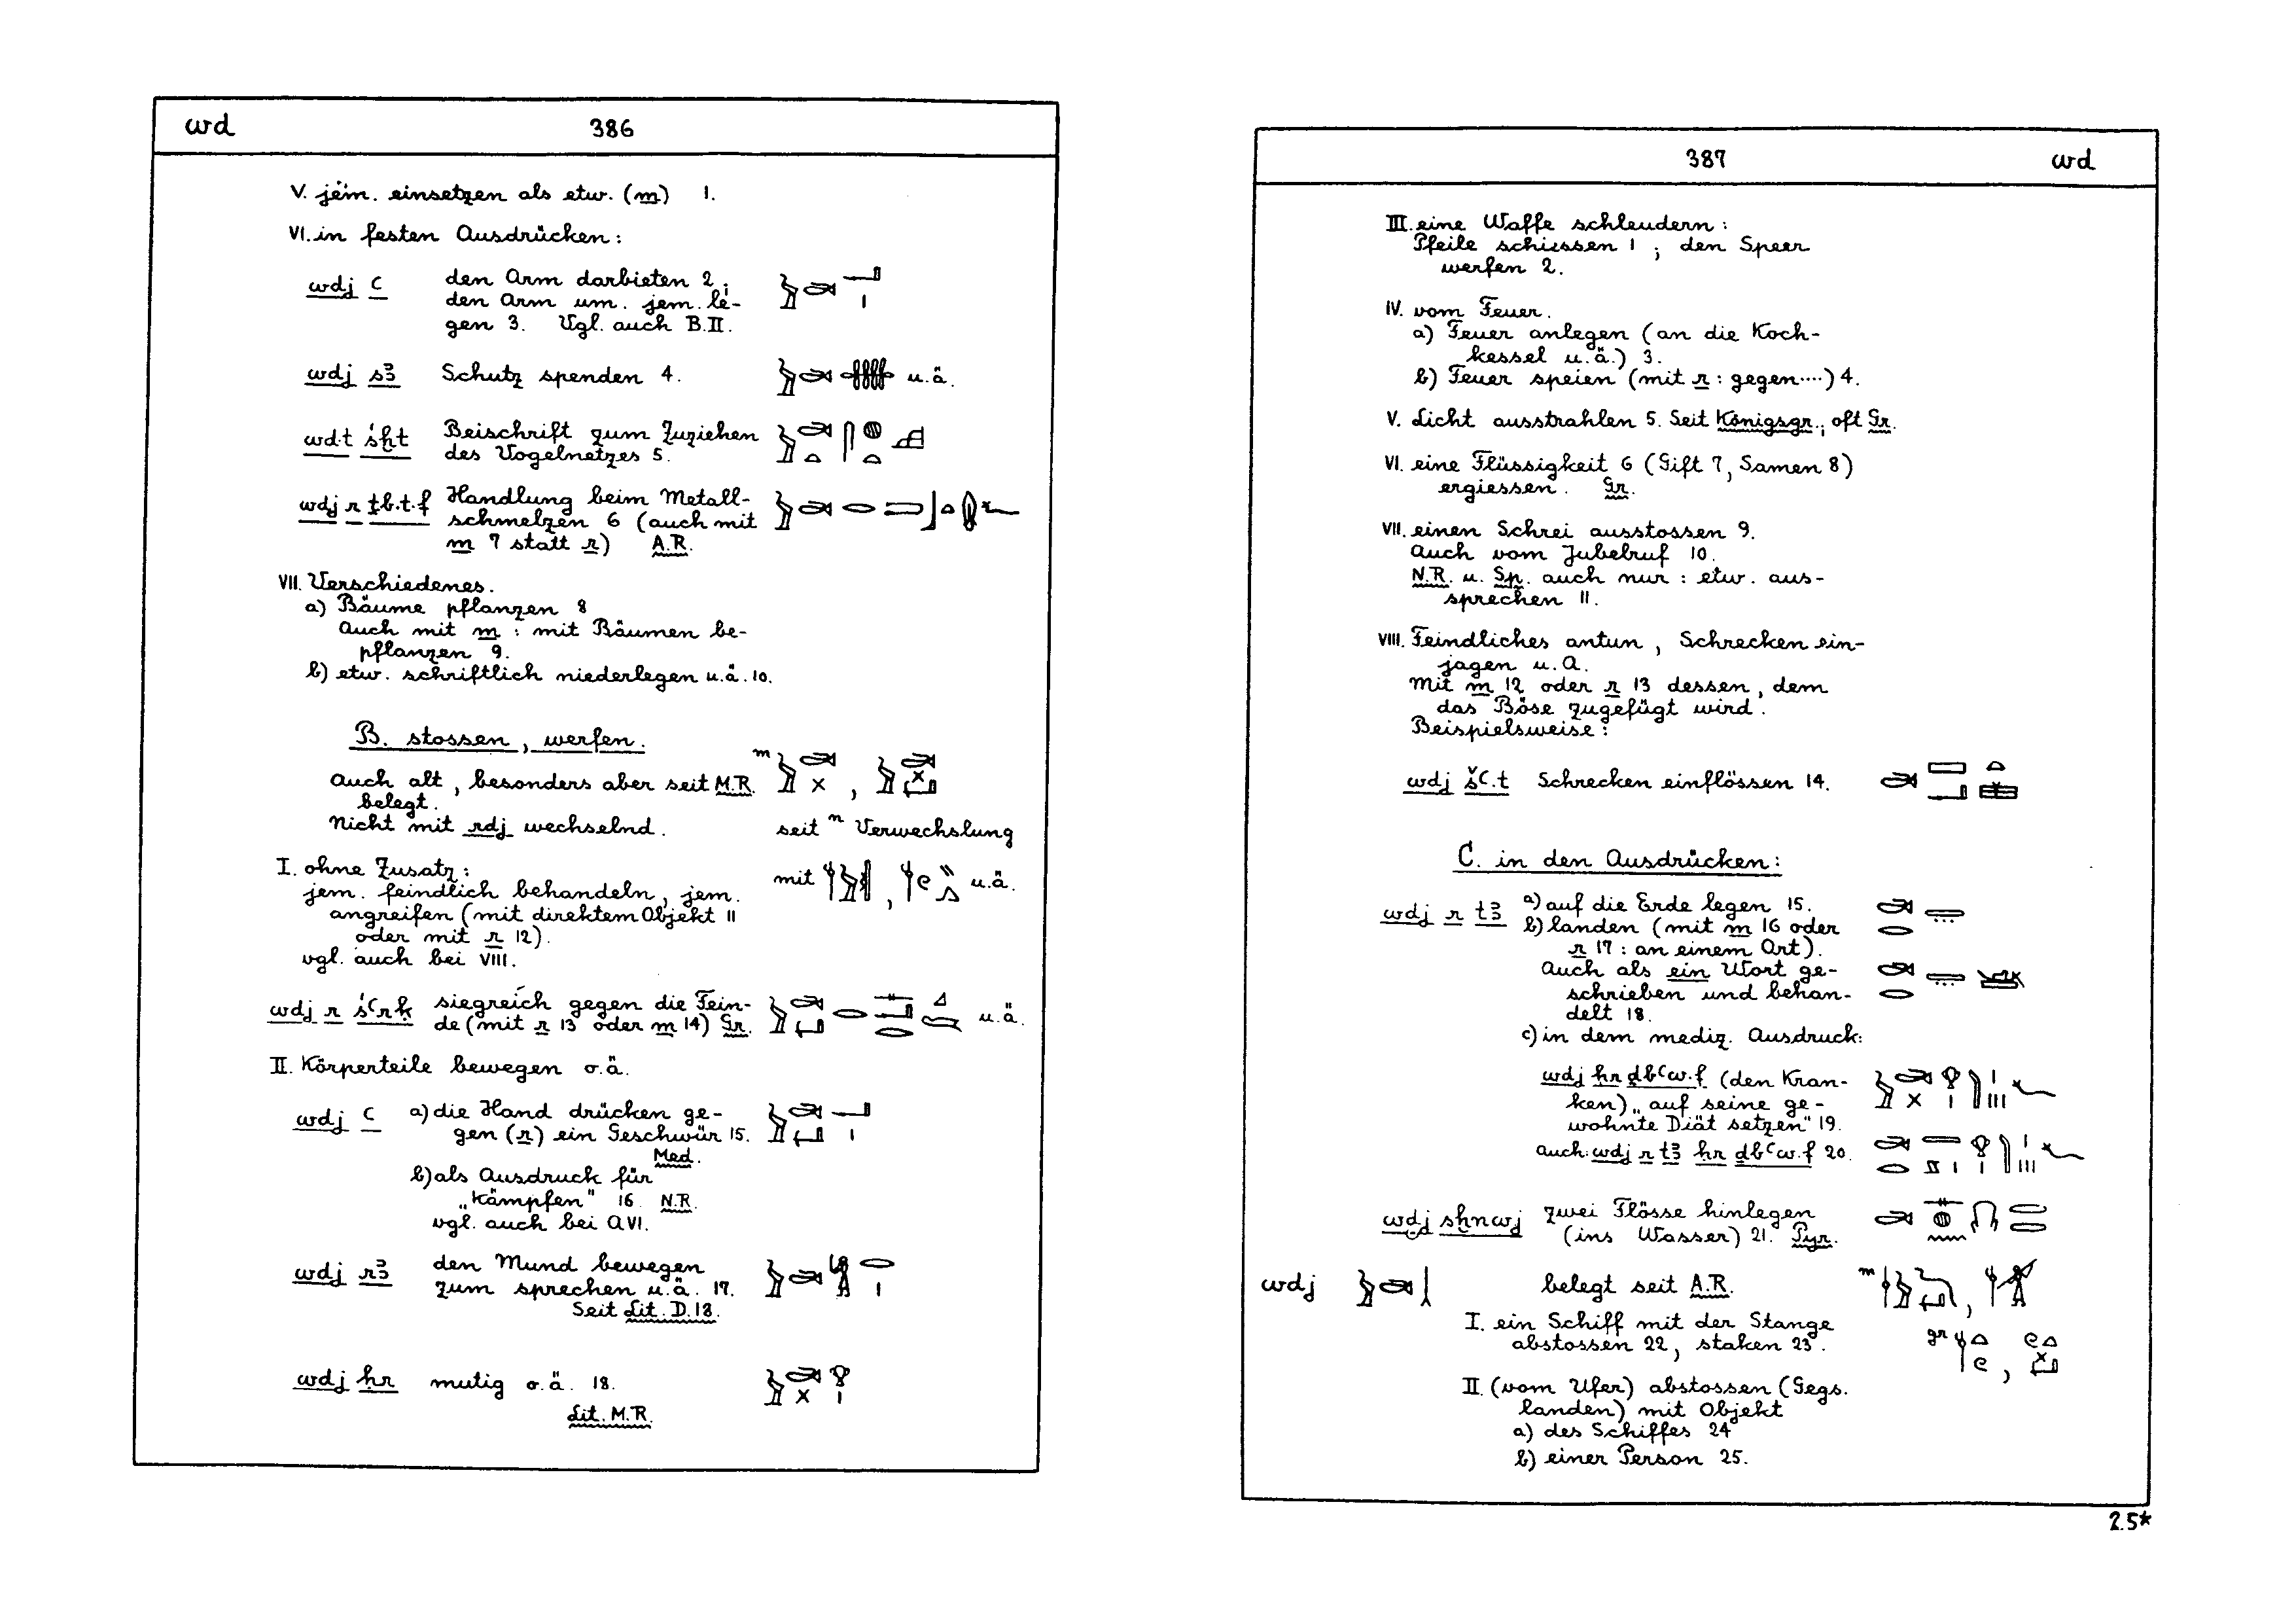 wd
386
V. jem. einsetzen als etw. (m) 1.
VI. in festen Ausdrücken:
wdj ꜥ den Arm darbieten 2;
den Arm um jem. le-
gen 3. Vgl. auch B.II.
wdj sꜣ Schutz spenden 4. u.ä.
wd.t śḫt Beischrift zum Zuziehen
des Vogelnetzes 5.
wdj r ṯb.t.f Handlung beim Metall-
schmelzen 6 (auch mit
m 7 statt r) A.R.
VII. Verschiedenes.
a) Bäume pflanzen 8
Auch mit m: mit Bäumen be-
pflanzen 9.
b) etw. schriftlich niederlegen u.ä. 10.
B. stossen, werfen.
Auch alt, besonders aber seit M.R.
belegt.
Nicht mit rdj wechselnd.
m ,
seit n Verwechslung
mit , u.ä.
I. ohne Zusatz:
jem. feindlich behandeln, jem.
angreifen (mit direktem Objekt 11
oder mit r 12).
vgl. auch bei VIII.
wdj r śꜥrḳ siegreich gegen die Fein-
de (mit r 13 oder m 14) Gr. u.ä.
II. Körperteile bewegen o.ä.
wdj ꜥ a) die Hand drücken ge-
gen (r) ein Geschwür 15.
Med.
b) als Ausdruck für
„Kämpfen" 16 N.R.
vgl. auch bei A VI.
wdj rꜣ den Mund bewegen
zum sprechen u.ä. 17.
Seit Lit. D.18.
wdj ḥr mutig o.ä. 18.
Lit. M.R.
387
wd
III. eine Waffe schleudern:
Pfeile schiessen 1; den Speer
werfen 2.
IV. vom Feuer.
a) Feuer anlegen (an die Koch-
kessel u.ä.) 3.
b) Feuer speien (mit r: gegen....) 4.
V. Licht ausstrahlen 5. Seit Königsgr.; oft Gr.
VI. eine Flüssigkeit 6 (Gift 7, Samen 8)
ergiessen. Gr.
VII. einen Schrei ausstossen 9.
Auch vom Jubelruf 10.
N.R. u. Sp. auch nur: etw. aus-
sprechen 11.
VIII. Feindliches antun, Schrecken ein-
jagen u.a.
Mit m 12 oder r 13 dessen, dem
das Böse zugefügt wird.
Beispielsweise:
wdj šꜥ.t Schrecken einflössen 14.
C. in den Ausdrücken:
wdj r tꜣ a) auf die Erde legen 15.
b) landen (mit m 16 oder
r 17: an einem Ort).
Auch als ein Wort ge-
schrieben und behan-
delt 18.
c) in dem mediz. Ausdruck:
wdj ḥr ḏbꜥw.f (den Kran-
ken) „auf seine ge-
wohnte Diät setzen" 19.
auch: wdj r tꜣ ḥr ḏbꜥw.f 20.
wdj sḫnwj zwei Flösse hinlegen
(ins Wasser) 21. Pyr.
wdj belegt seit A.R. m ,
I. ein Schiff mit der Stange
abstossen 22, staken 23. gr ,
II. (vom Ufer) abstossen (Gegs.
landen) mit Objekt
a) des Schiffes 24
b) einer Person 25.
25*